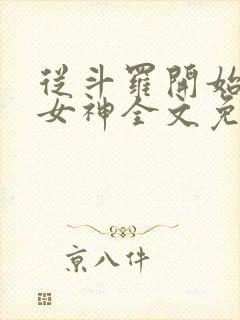 從斗羅開始
女神全文免
京八件